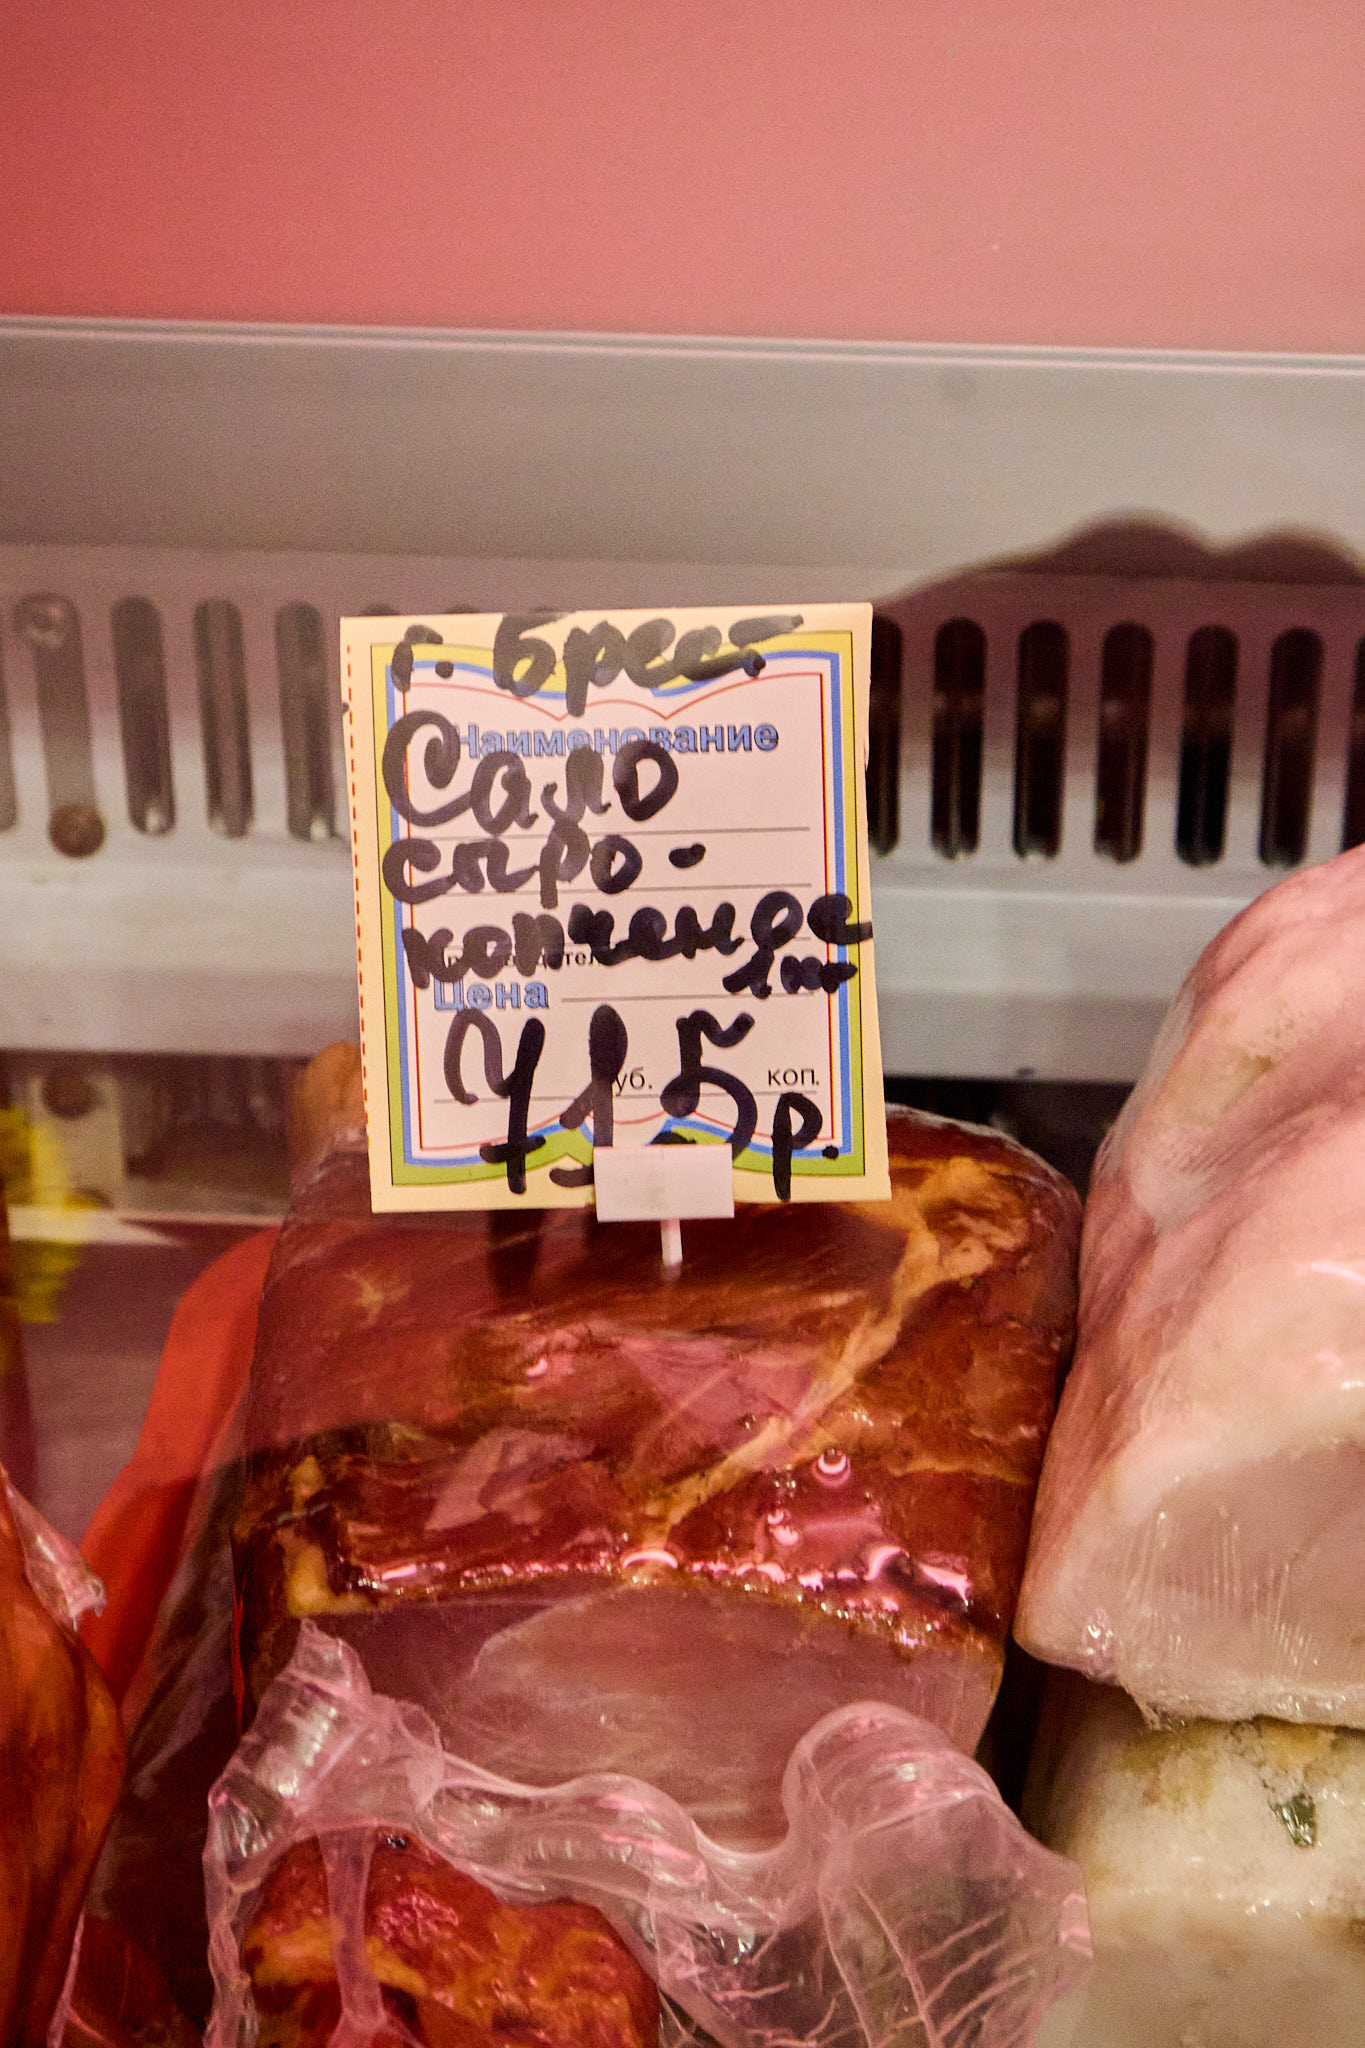 г. Брест
Наименование
Сало
сыро-
копченое
1 кг
Цена
715 р.
руб. коп.